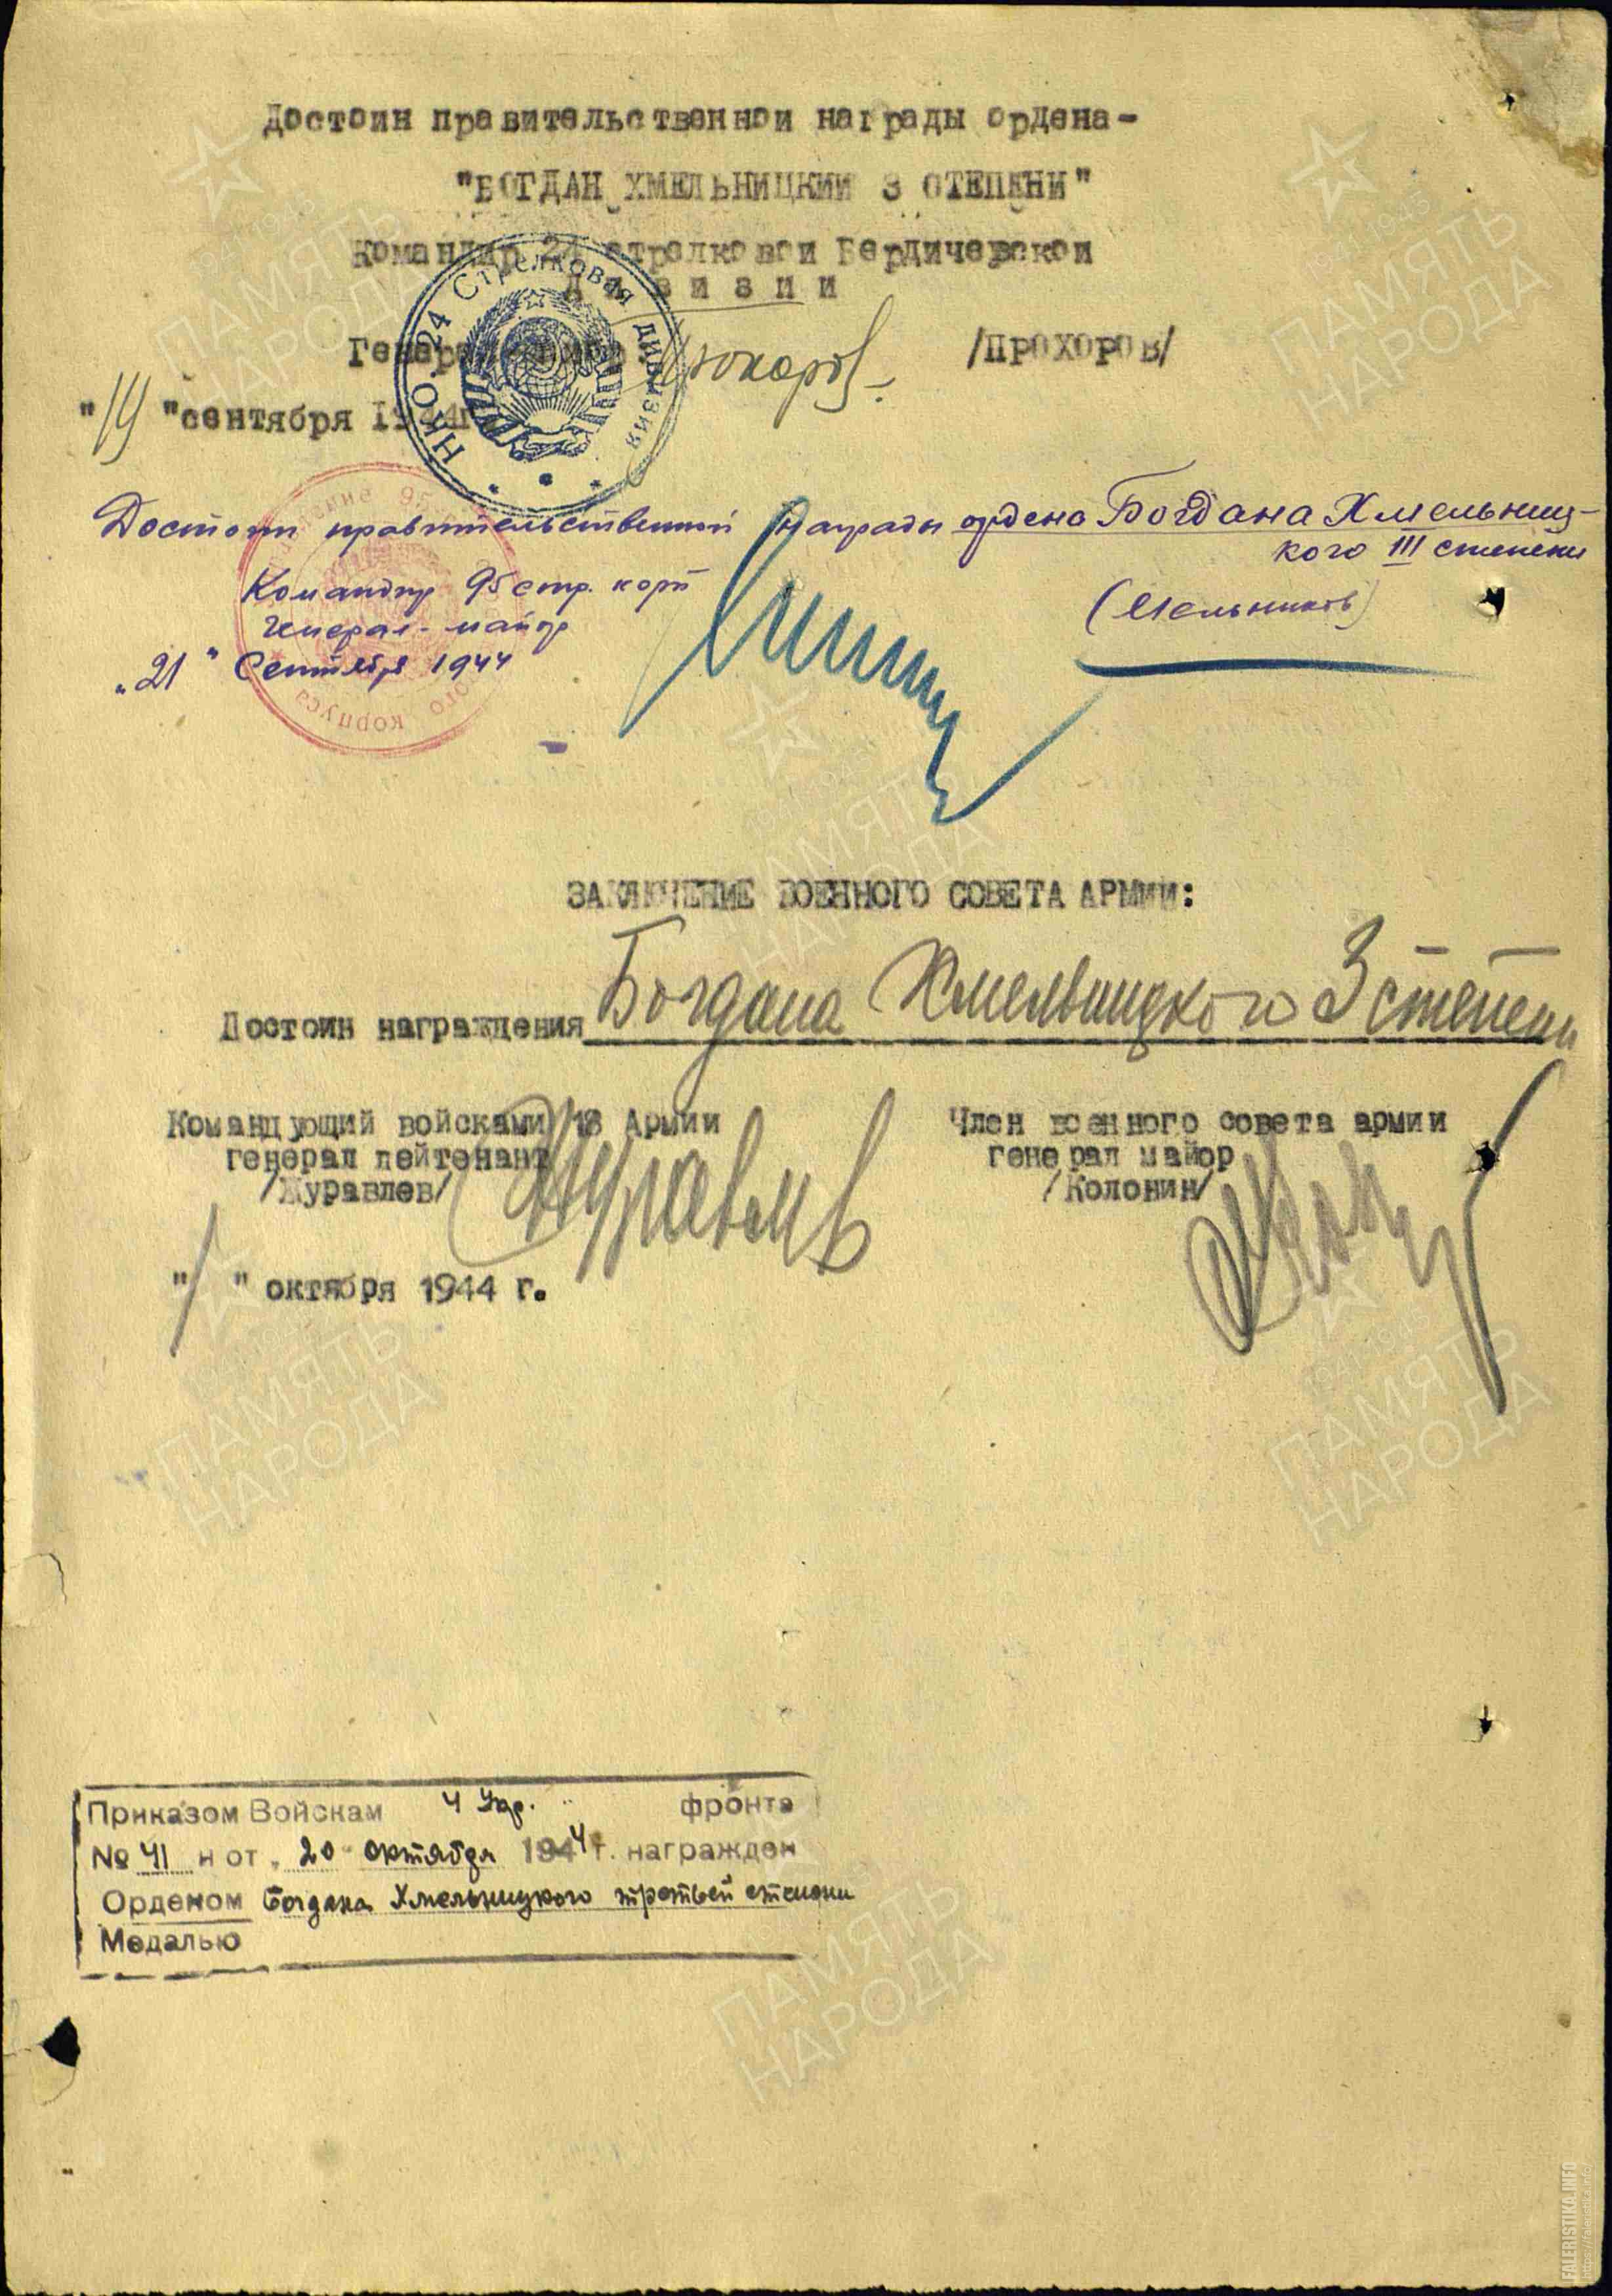 Достоин правительственной награды ордена-
"БОГДАН ХМЕЛЬНИЦКИЙ 3 СТЕПЕНИ"
Командир 24 стрелковой Бердичевской
дивизии
Генерал Прохоров /ПРОХОРОВ/
"19" сентября 1944г
НКО 24 Стрелковая дивизия
Достоин правительственной награды ордена Богдана Хмельниц-
кого III степени
Командир 95 стр. корп
генерал-майор (Мельников)
"21" Сентября 1944
корпуса
ЗАКЛЮЧЕНИЕ ВОЕННОГО СОВЕТА АРМИИ:
Достоин награждения Богдана Хмельницкого 3 степени
Командующий войсками 18 Армии Член военного совета армии
генерал лейтенант генерал майор
/Журавлев/ Журавлев /Колонин/
"1" октября 1944 г.
Приказом Войскам 4 Укр. фронта
№ 41 н от "20" октября 1944 г. награжден
Орденом Богдана Хмельницкого третьей степени
Медалью
ПАМЯТЬ НАРОДА
1941-1945
FALERISTIKA.INFO
https://faleristika.info/